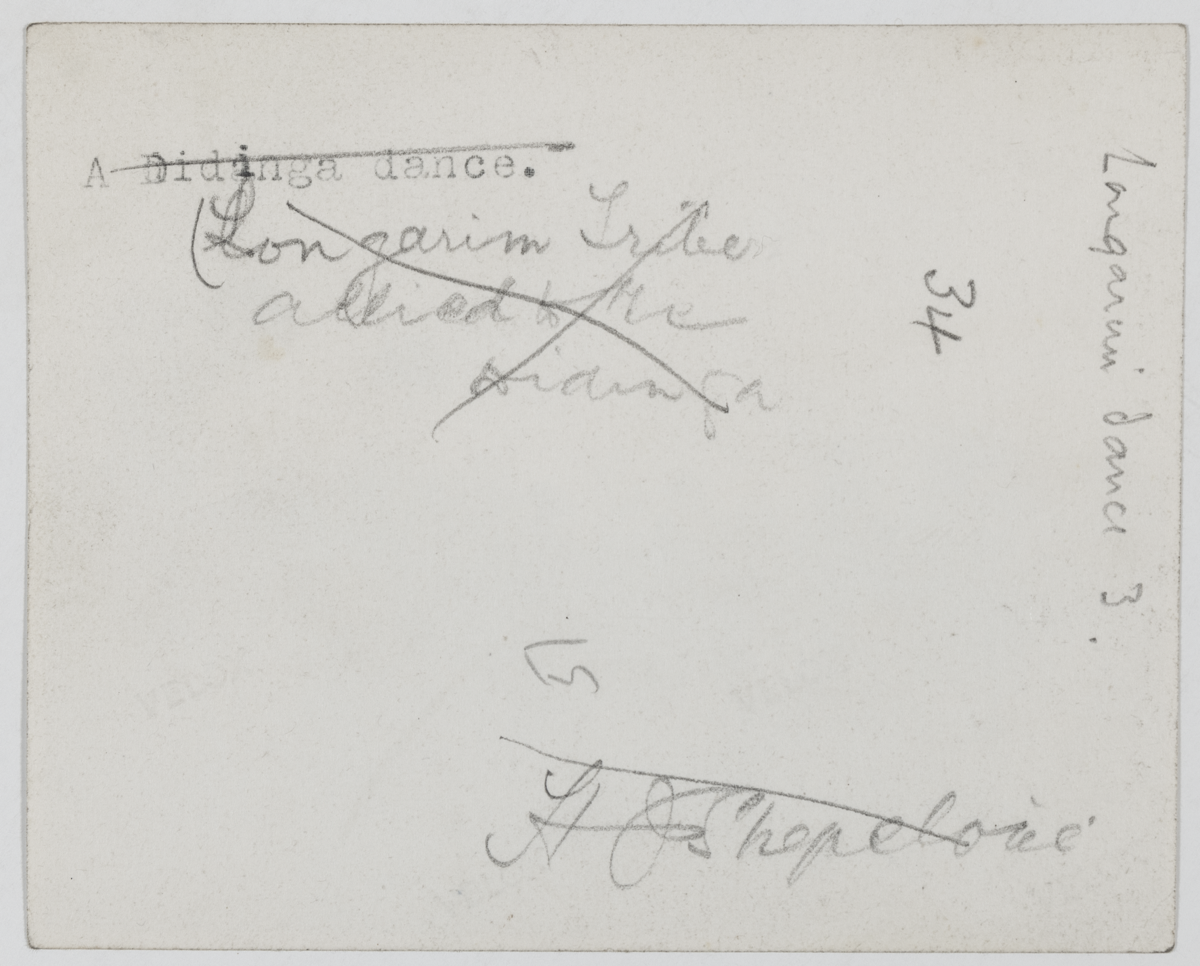 A Didinga dance.
(Longarim Tribe
allied to the
Didinga
34
Longarim dance 3.
15